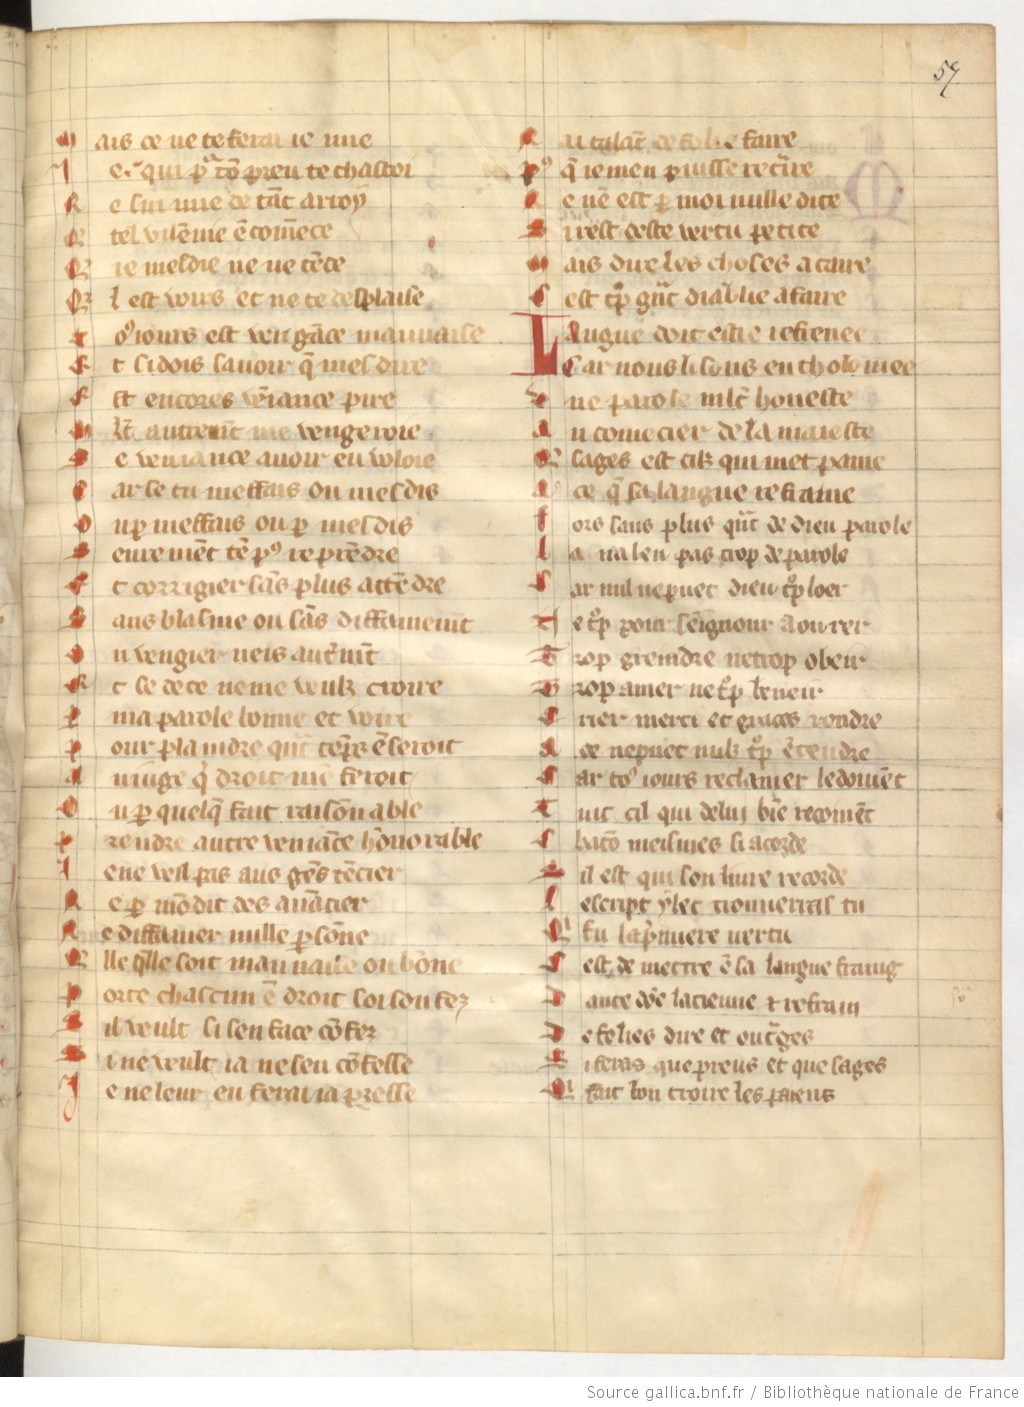 57
Mais ce ne te ferai ie mie
Ie qui pͬ tō preu te chastoi
Ne sui mie de tāt arroy
tel vilenie ēcomece
Qͥ ie mesdie ne ne tēce
Ql est voirs et ne te desplaise
toꝰiours est vengāce mauuaise
Et si dois sauoir q̄ mesdire
Est encores veniance pire
Mlt̄ autremt̄ me vengeroie
Se veniance auoir en voloie
Car se tu meffais ou mesdis
Ou ꝑ meffais ou ꝑ mesdis
Secreemēt tē pꝰ reprēdre
Et corrigier sās plus attēdre
Sans blasme ou sās diffamemt̄
Ou vengier neis autremt̄
Et se de ce ne me veulz croire
Ma parole bonne et voire
Pour plaindre qūt tēps ē seroit
Au iuge qͥ droit mē feroit
Ou ꝑ quelq̄ fait raisōnable
Prendre autre veniāce hōnorable
Ie ne veil pas aus gēs tēcier
Ne ꝑ mō dit des auācier
Ne diffamer nulle ꝑsōne
Quelle q̄lle soit mauuaise ou bōne
Porte chascun ē droit soi son fez
Sil veult si sen face cōfez
Si ne veult ia ne sen cōfesse
Je ne leur en ferai ia p̄resse
Nai talāt de folie faire
Pꝰ q̄ ie men puisse retͣire
Ne nē est ꝑ moi nulle dite
Si rest ceste vertu petite
Mais dire les choses a taire
Cest tͦp gͣt diablie a faire
Langue doit estre refrenee
Car nous lisons en tholomee
Vne parole mlt̄ honeste
Au comēcier de la maieste
Q sages est cilz qui met paine
A ce q̄ sa langue refraine
Fors sans plus qūt de dieu parole
La na len pas trop de parole
Car nul ne puet dieu tͦp loer
Ne tͦp pour sēignour aourer
Trop creindre ne trop obeir
Trop amer ne tͦp beneir
Crier merci et graces rendre
A ce ne puet nulz tͦp ētendre
Car toꝰ iours reclamer le doiuēt
Tuit cil qui de lui biē recoiuēt
Catō meismes si acorde
Sil est qui son liure recorde
Lescript ylec trouuerras tu
Q̄ fu la pͥmiere vertu
Cest de mettre ē sa langue fraing
Dante dōc la tienne ⁊ refrain
De folies dire et outͣges
Si feras que preus et que sages
Ql̄ fait bon croire les paiens
Source gallica.bnf.fr / Bibliothèque nationale de France